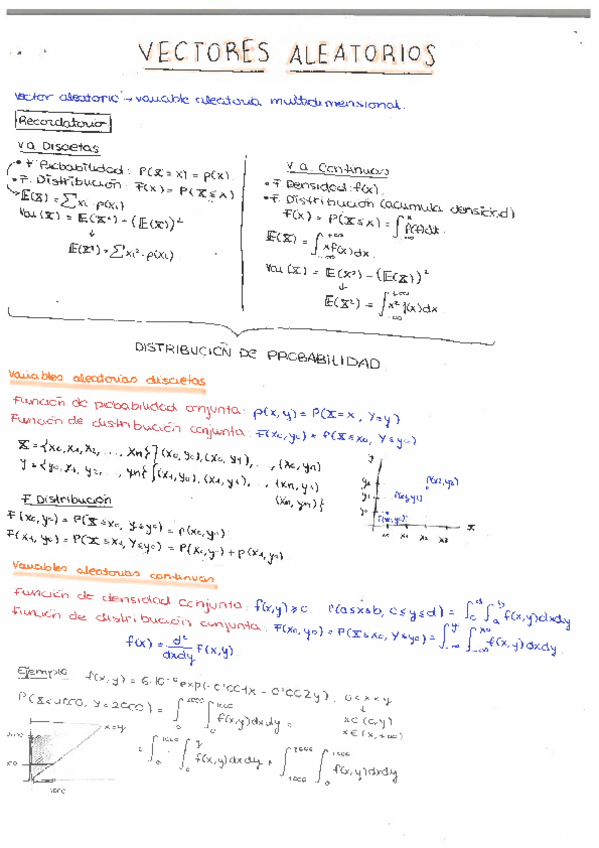 VECTORES ALEATORIOS
Vector aleatorio → variable aleatoria multidimensional.
Recordatorio
V.a. Discretas
• F. Probabilidad: P(X=x) = p(x).
• F. Distribución: F(x) = P(X≤x)
E(X) = ∑xi·p(xi)
Var(X) = E(X²) - (E(X))²
↓
E(X²) = ∑xi²·p(xi)
V.a. Continuas
• F. Densidad: f(x).
• F. Distribución (acumula densidad)
F(x) = P(X≤x) = ∫
E(X) = ∫ x f(x) dx.
Var(X) = E(X²) - (E(X))²
↓
E(X²) = ∫ x² f(x) dx
DISTRIBUCIÓN DE PROBABILIDAD
Variables aleatorias discretas
Función de probabilidad conjunta: p(x,y) = P(X=x, Y=y)
Función de distribución conjunta: F(x₀,y₀) = P(X≤x₀, Y≤y₀)
X = {x₀, x₁, x₂, ..., xn} (x₀,y₀), (x₀,y₁), ..., (x₀,yn)
Y = {y₀, y₁, y₂, ..., yn} (x₁,y₀), (x₁,y₁), ..., (xn,y₁)
(xn,yn)}
F. Distribución
F(x₀,y₀) = P(X≤x₀, Y≤y₀) = p(x₀,y₀)
F(x₁,y₀) = P(X≤x₁, Y≤y₀) = p(x₀,y₀) + p(x₁,y₀)
Variables aleatorias continuas
Función de densidad conjunta: f(x,y) ≥ 0. P(a≤x≤b, c≤y≤d) = ∫ ∫ f(x,y) dxdy
Función de distribución conjunta: F(x₀,y₀) = P(X≤x₀, Y≤y₀) = ∫ ∫ f(x,y) dxdy.
f(x) = d²/dxdy F(x,y)
Ejemplo f(x,y) = 6·10⁻⁶ exp(-0'001x - 0'002y), 0<x<y
↓
x∈(0,y)
x∈(x,+∞)
P(X<1000, Y<2000) = ∫ ∫ f(x,y) dxdy =
x=y
1000
= ∫ ∫ f(x,y) dxdy + ∫ ∫ f(x,y) dxdy